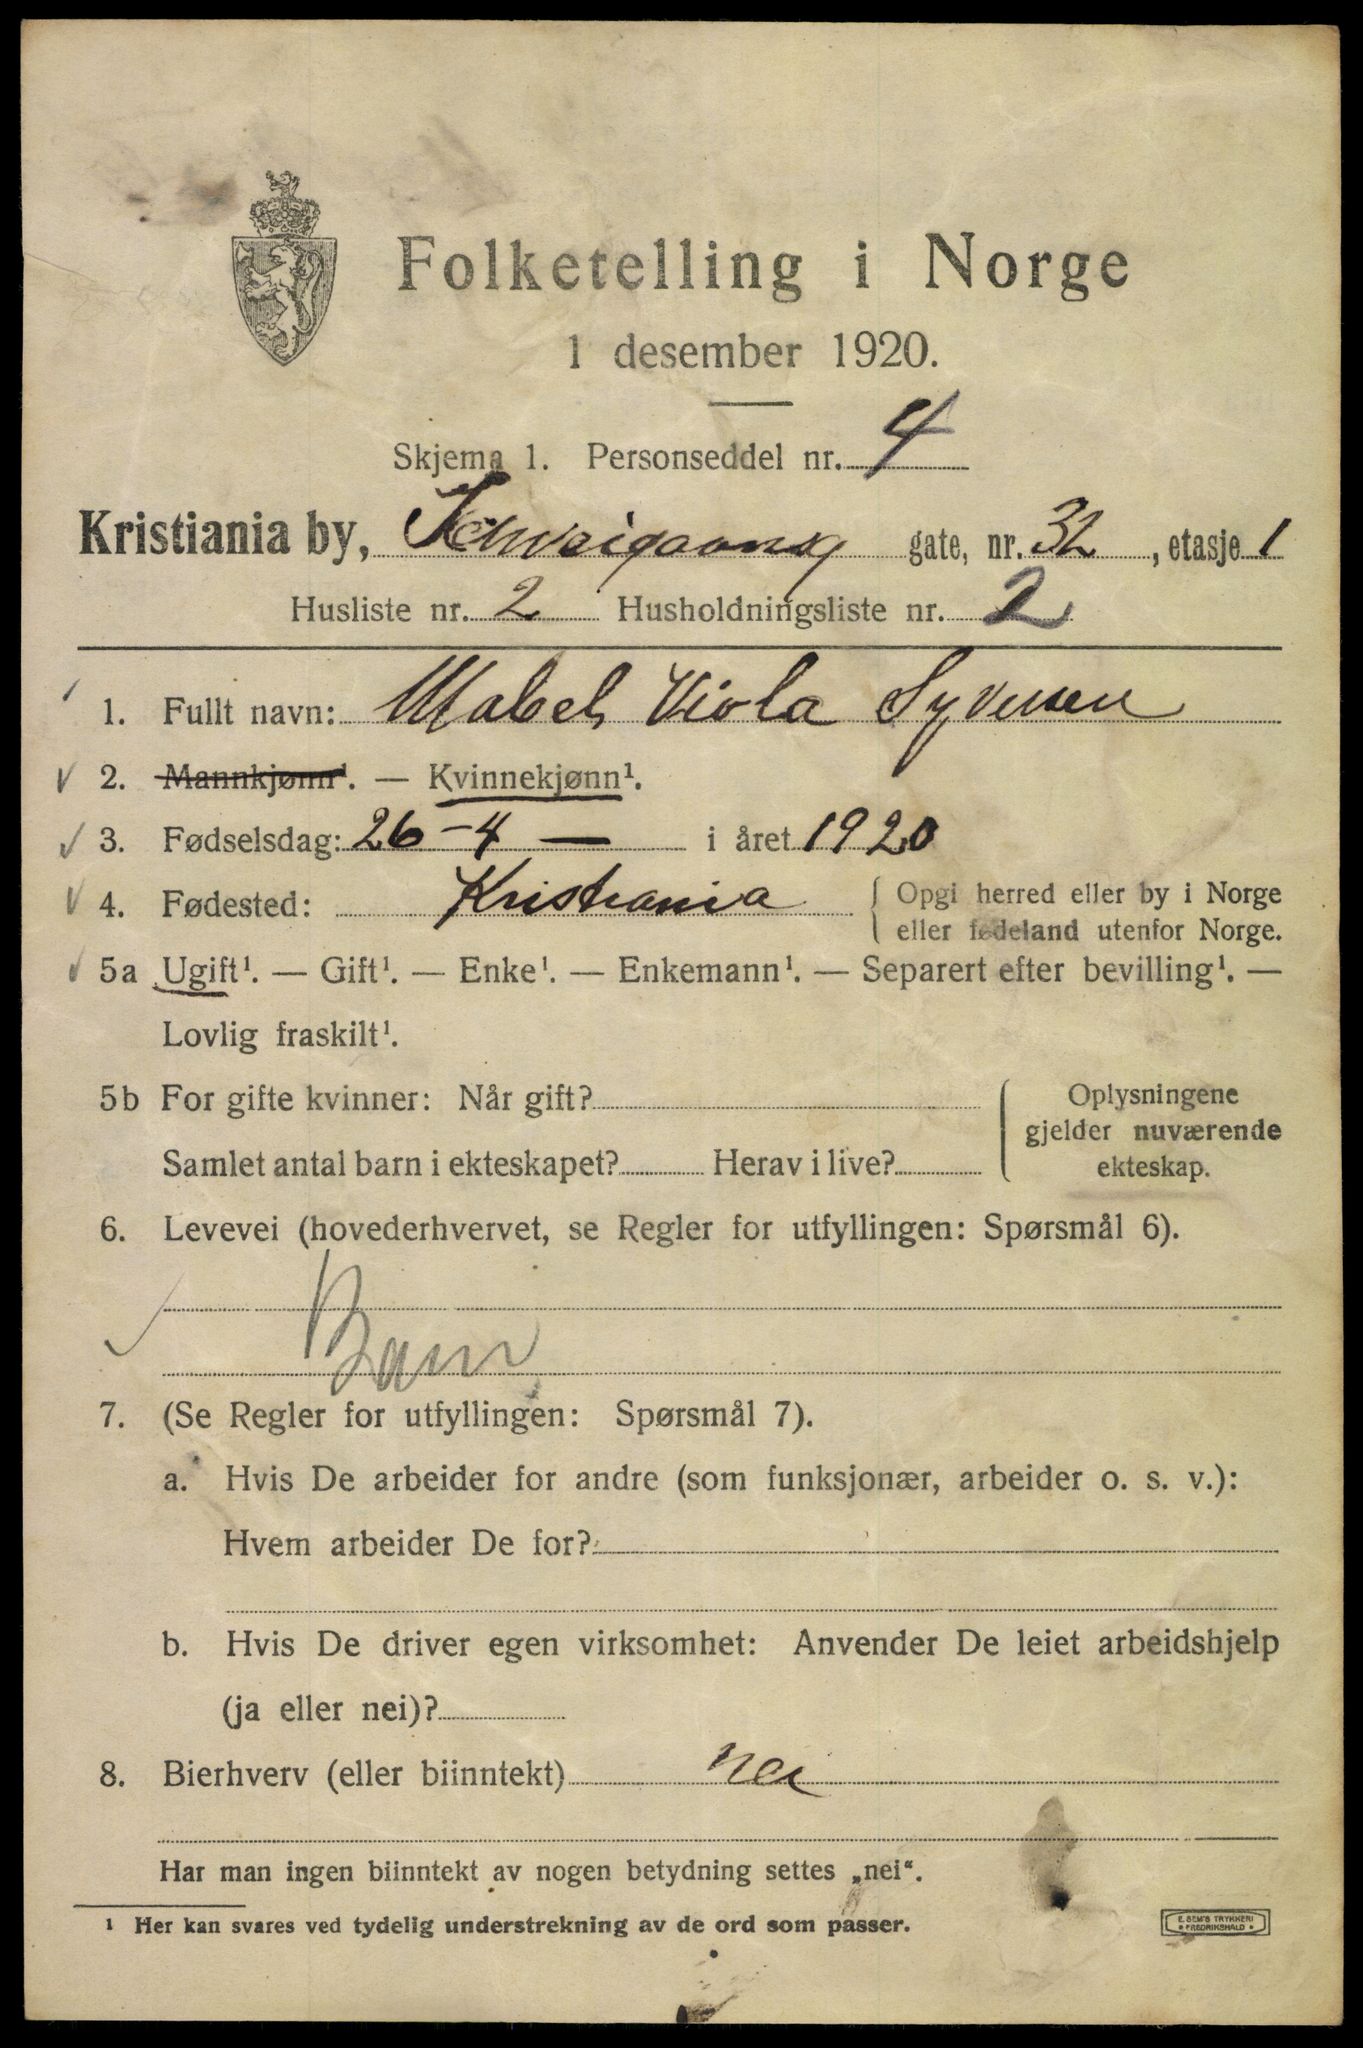 Folketelling i Norge
1 desember 1920.
Skjema 1. Personseddel nr. 4
Kristiania by, Schweigaards gate, nr. 32, etasje 1
Husliste nr. 2 Husholdningsliste nr. 2
1. Fullt navn: Mabel Viola Syversen
2. Mannkjønn¹. — Kvinnekjønn¹.
3. Fødselsdag: 26-4 — i året 1920
4. Fødested: Kristiania { Opgi herred eller by i Norge
eller fødeland utenfor Norge.
5a Ugift¹. — Gift¹. — Enke¹. — Enkemann¹. — Separert efter bevilling¹. —
Lovlig fraskilt¹.
5b For gifte kvinner: Når gift? { Oplysningene
gjelder nuværende
Samlet antal barn i ekteskapet? Herav i live? ekteskap.
6. Levevei (hovederhvervet, se Regler for utfyllingen: Spørsmål 6).
Barn
7. (Se Regler for utfyllingen: Spørsmål 7).
a. Hvis De arbeider for andre (som funksjonær, arbeider o. s. v.):
Hvem arbeider De for?
b. Hvis De driver egen virksomhet: Anvender De leiet arbeidshjelp
(ja eller nei)?
8. Bierhverv (eller biinntekt) nei
Har man ingen biinntekt av nogen betydning settes „nei“.
¹ Her kan svares ved tydelig understrekning av de ord som passer.
E. SEM'S TRYKKERI
FREDRIKSHALD